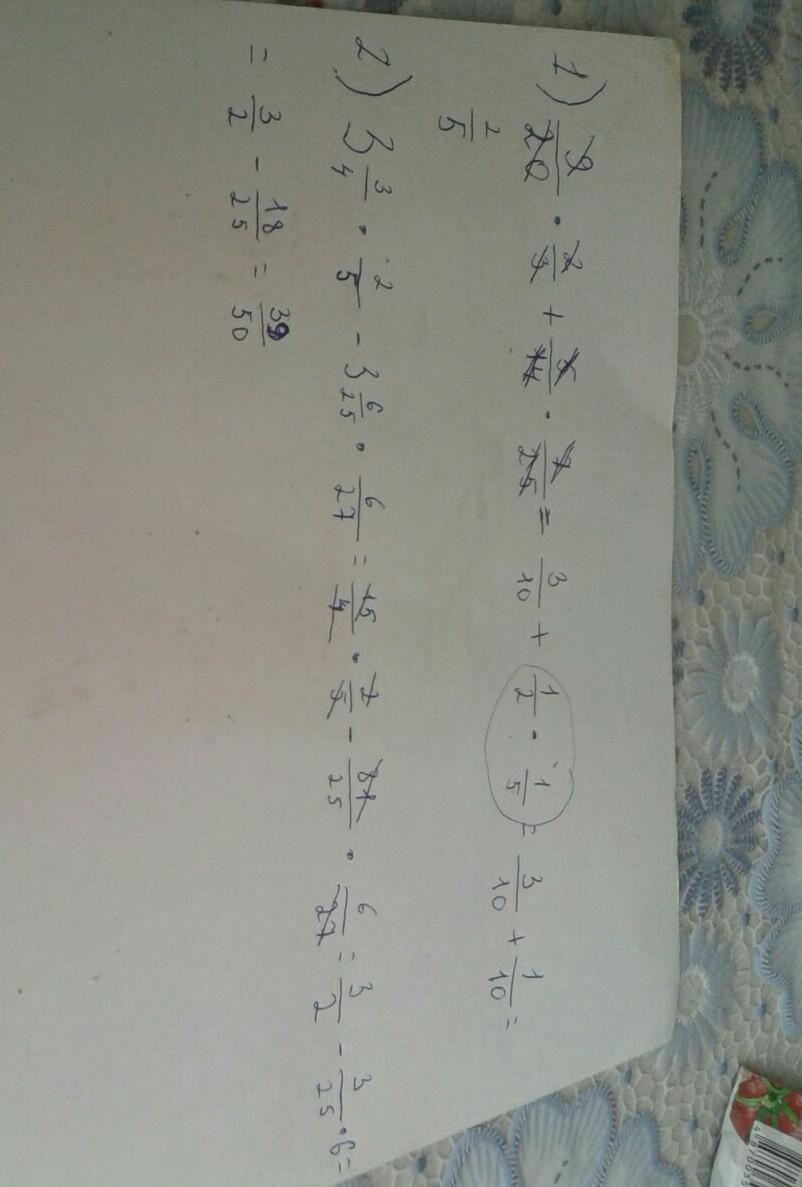 1) 9/20 · 2/3 + 5/14 · 7/25 = 3/10 + 1/2 · 1/5 = 3/10 + 1/10 =
2/5
2) 3 3/4 · 2/5 - 3 6/25 · 6/27 = 15/4 · 2/5 - 81/25 · 6/27 = 3/2 - 3/25 · 6 =
= 3/2 - 18/25 = 39/50